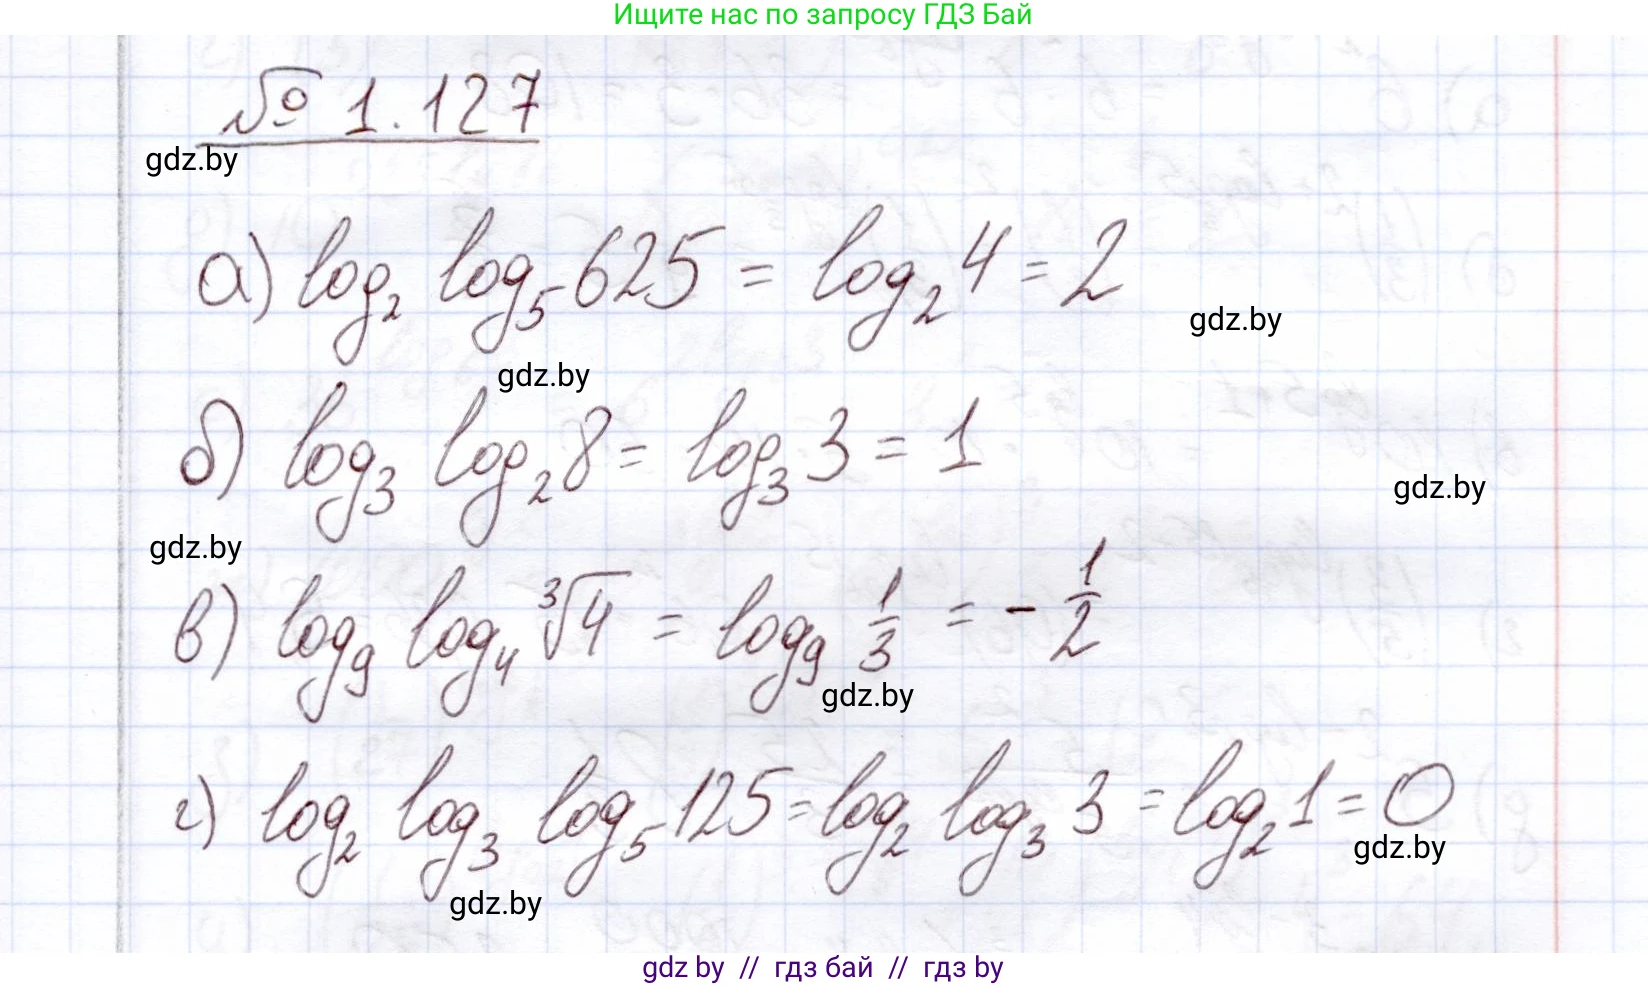 Ищите нас по запросу ГДЗ Бай
№ 1.127
gdz.by
а) log₂ log₅ 625 = log₂ 4 = 2
gdz.by
gdz.by
б) log₃ log₂ 8 = log₃ 3 = 1
gdz.by
gdz.by
в) log₉ log₄ ∛4 = log₉ 1/3 = - 1/2
gdz.by
г) log₂ log₃ log₅ 125 = log₂ log₃ 3 = log₂ 1 = 0
gdz.by
gdz.by
gdz by // гдз бай // гдз by